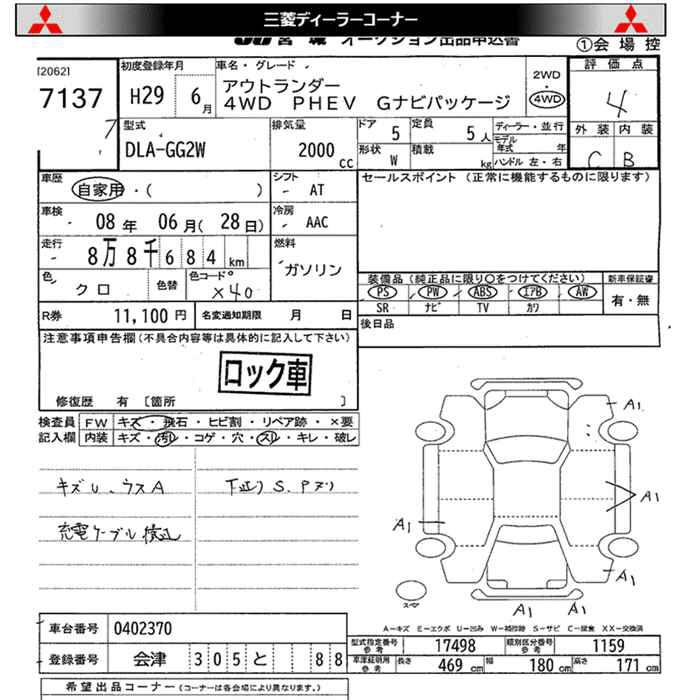 三菱ディーラーコーナー
JU 宮城 オークション出品申込書
①会場控
[2062]
7137
初度登録年月
H29 6月
車名・グレード
アウトランダー
4WD PHEV Gナビパッケージ
2WD
4WD
評価点
4
外装 内装
C B
7
型式
DLA-GG2W
排気量
2000 cc
ドア 5
定員 5人
ディーラー・並行
形状 W
積載 kg
モデル年式 年
ハンドル 左・右
車歴
自家用・( )
シフト
AT
セールスポイント (正常に機能するものに限ります)
車検
08年 06月(28日)
冷房
AAC
走行
8万8千684km
燃料
ガソリン
色
クロ
色替
色コード
X40
装備品(純正品に限り○をつけてください)
新車保証書
PS PW ABS エアB AW
SR ナビ TV カワ
有・無
R券 11,100円
名変通知期限 月 日
後日品
注意事項申告欄(不具合内容等は具体的に記入して下さい)
ロック車
修復歴 有 〔箇所 〕
検査員
記入欄
FW キズ・飛石・ヒビ割・リペア跡・×要
内装 キズ・汚レ・コゲ・穴・スレ・キレ・破レ
キズU、ウスA
下廻りS、Pヌリ
充電ケーブル
A1
A1
A1
A1
A1 A1
スペア
A=キズ E=エクボ U=凹み W=補修跡 S=サビ C=腐食 XX=交換済
車台番号 0402370
登録番号 会津 305 と 88
型式指定番号 参考 17498
類別区分番号 参考 1159
車庫証明用 参考 長さ 469cm 幅 180cm 高さ 171cm
希望出品コーナー(コーナーは各会場により異なります。)